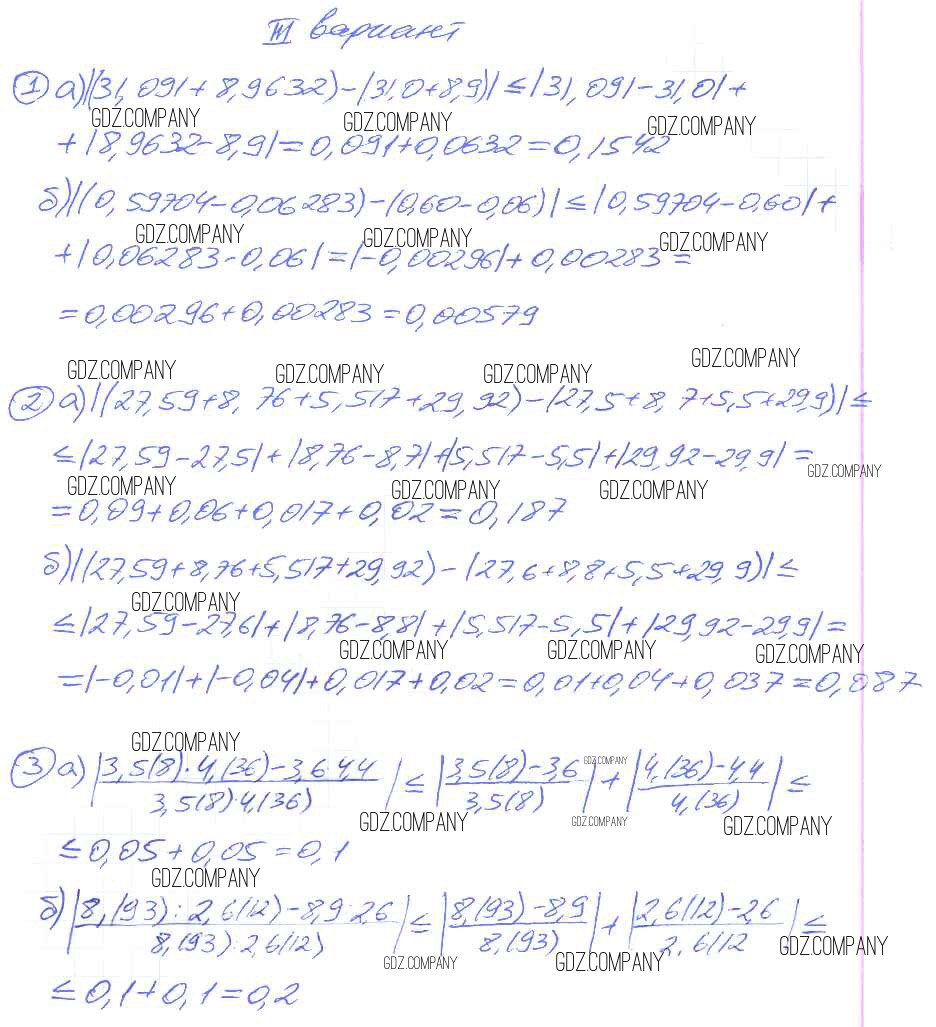 III вариант
① а) |(31,091 + 8,9632) - (31,0 + 8,9)| ≤ |31,091 - 31,0| +
GDZ.COMPANY GDZ.COMPANY GDZ.COMPANY
+ |8,9632 - 8,9| = 0,091 + 0,0632 = 0,1542
б) |(0,59704 - 0,06283) - (0,60 - 0,06)| ≤ |0,59704 - 0,60| +
GDZ.COMPANY GDZ.COMPANY GDZ.COMPANY
+ |0,06283 - 0,06| = |-0,00296| + 0,00283 =
= 0,00296 + 0,00283 = 0,00579
GDZ.COMPANY GDZ.COMPANY GDZ.COMPANY GDZ.COMPANY
② а) |(27,59 + 8,76 + 5,517 + 29,92) - (27,5 + 8,7 + 5,5 + 29,9)| ≤
≤ |27,59 - 27,5| + |8,76 - 8,7| + |5,517 - 5,5| + |29,92 - 29,9| =
GDZ.COMPANY GDZ.COMPANY GDZ.COMPANY GDZ.COMPANY
= 0,09 + 0,06 + 0,017 + 0,02 = 0,187
б) |(27,59 + 8,76 + 5,517 + 29,92) - (27,6 + 8,8 + 5,5 + 29,9)| ≤
GDZ.COMPANY
≤ |27,59 - 27,6| + |8,76 - 8,8| + |5,517 - 5,5| + |29,92 - 29,9| =
GDZ.COMPANY GDZ.COMPANY GDZ.COMPANY
= |-0,01| + |-0,04| + 0,017 + 0,02 = 0,01 + 0,04 + 0,037 = 0,087
GDZ.COMPANY GDZ.COMPANY
③ а) |3,5(8) · 4,(36) - 3,6 · 4,4 / 3,5(8) · 4,(36)| ≤ |3,5(8) - 3,6 / 3,5(8)| + |4,(36) - 4,4 / 4,(36)| ≤
GDZ.COMPANY GDZ.COMPANY GDZ.COMPANY
≤ 0,05 + 0,05 = 0,1
GDZ.COMPANY
б) |8,(93) : 2,6(12) - 8,9 : 2,6 / 8,(93) : 2,6(12)| ≤ |8,(93) - 8,9 / 8,(93)| + |2,6(12) - 2,6 / 2,6(12| ≤
GDZ.COMPANY GDZ.COMPANY GDZ.COMPANY
≤ 0,1 + 0,1 = 0,2